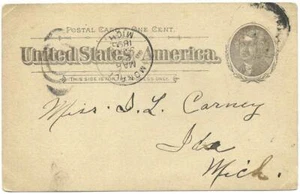 POSTAL CARD - ONE CENT.
United States of America.
THIS SIDE IS FOR ADDRESS ONLY.
MONROE
MICH
Miss. D. L. Carney
Ida
Mich.